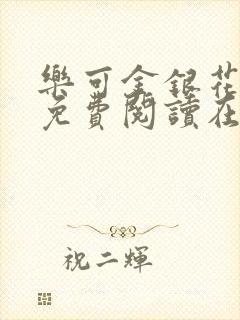 樂可金銀花
免費閱讀在
祝二輝